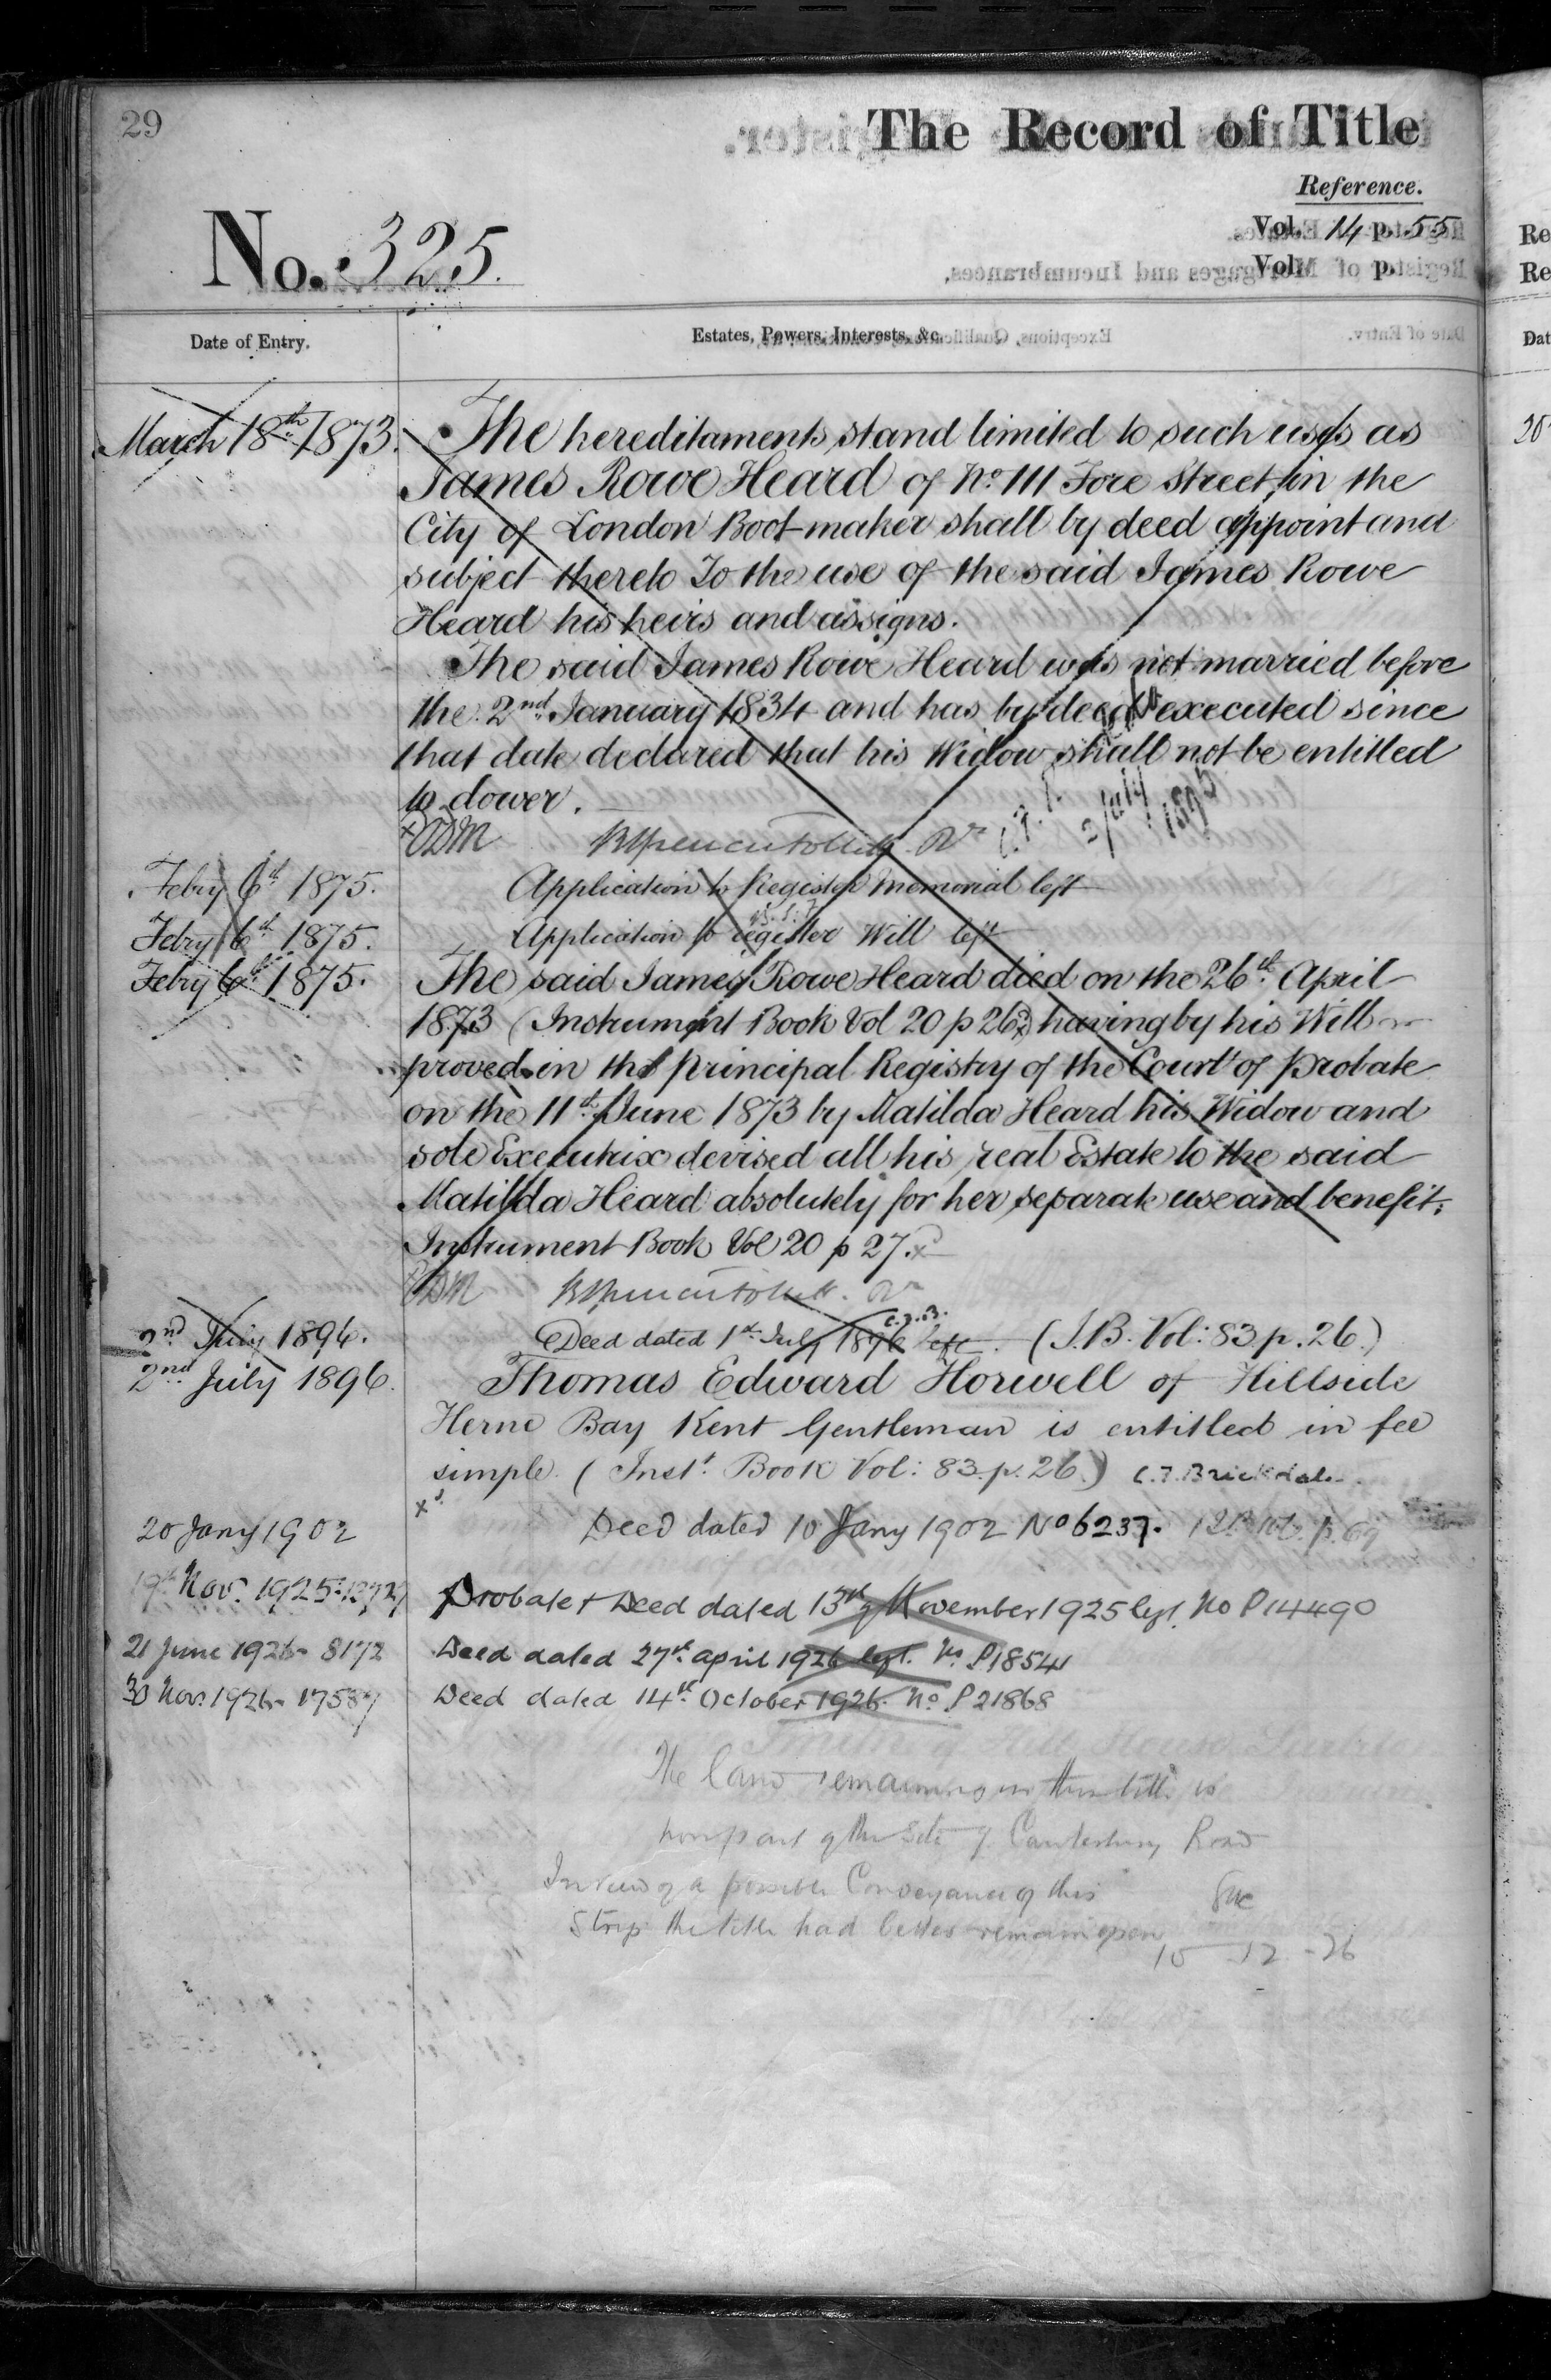 29
The Record of Title
Reference.
Vol. 14 p. 55
Vol. p.
No. 325.
Date of Entry.
Estates, Powers, Interests, &c.
March 18th 1873.
The hereditaments stand limited to such uses as
James Rowe Heard of No. 111 Fore Street, in the
City of London Boot-maker shall by deed appoint and
subject thereto To the use of the said James Rowe
Heard his heirs and assigns.
The said James Rowe Heard was not married before
the 2nd January 1834 and has by deed executed since
that date declared that his Widow shall not be entitled
to dower.
2 July 1896
Feby 6th 1875. Application to Register Memorial left
Feby 6th 1875. Application to register Will left
Feby 6th 1875. The said James Rowe Heard died on the 26th April
1873 (Instrument Book Vol 20 p 26) having by his Will
proved in the principal Registry of the Court of Probate
on the 11th June 1873 by Matilda Heard his Widow and
sole Executrix devised all his real Estate to the said
Matilda Heard absolutely for her separate use and benefit.
Instrument Book Vol 20 p 27.
C.F.B.
2nd July 1896. Deed dated 1st July 1896 left. (I.B. Vol: 83 p. 26.)
2nd July 1896. Thomas Edward Horwell of Hillside
Herne Bay Kent Gentleman is entitled in fee
simple. (Inst. Book Vol: 83. p. 26.) C.F. Brickdale.
20 Jany 1902 Deed dated 10 Jany 1902 No 6237.
19th Nov. 1925. Probate & Deed dated 13th of November 1925 left No P14490
21 June 1926 - 8172 Deed dated 27th April 1926 left. No. P18541
30 Nov. 1926 - 17587 Deed dated 14th October 1926. No. P21868
The land remaining in this title is
now part of the site of Canterbury Road
In view of a possible Conveyance of this
Strip the title had better remain open
15-12-26
Re
Re
Dat